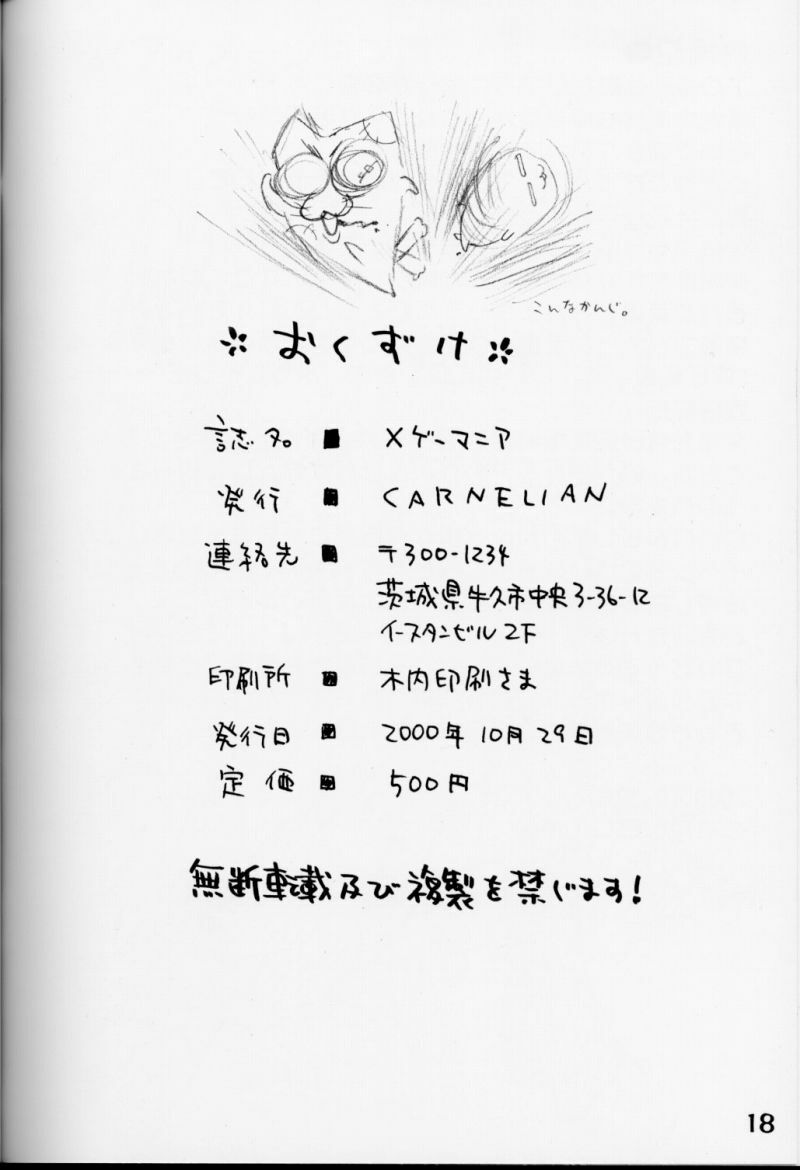 こんなかんじ。
おくずけ
誌名 ■ Xゲーマニア
発行 ■ CARNELIAN
連絡先 ■ 〒300-1234
茨城県牛久市中央3-36-12
イースタンビル2F
印刷所 ■ 木内印刷さま
発行日 ■ 2000年10月29日
定価 ■ 500円
無断転載及び複製を禁じます!
18